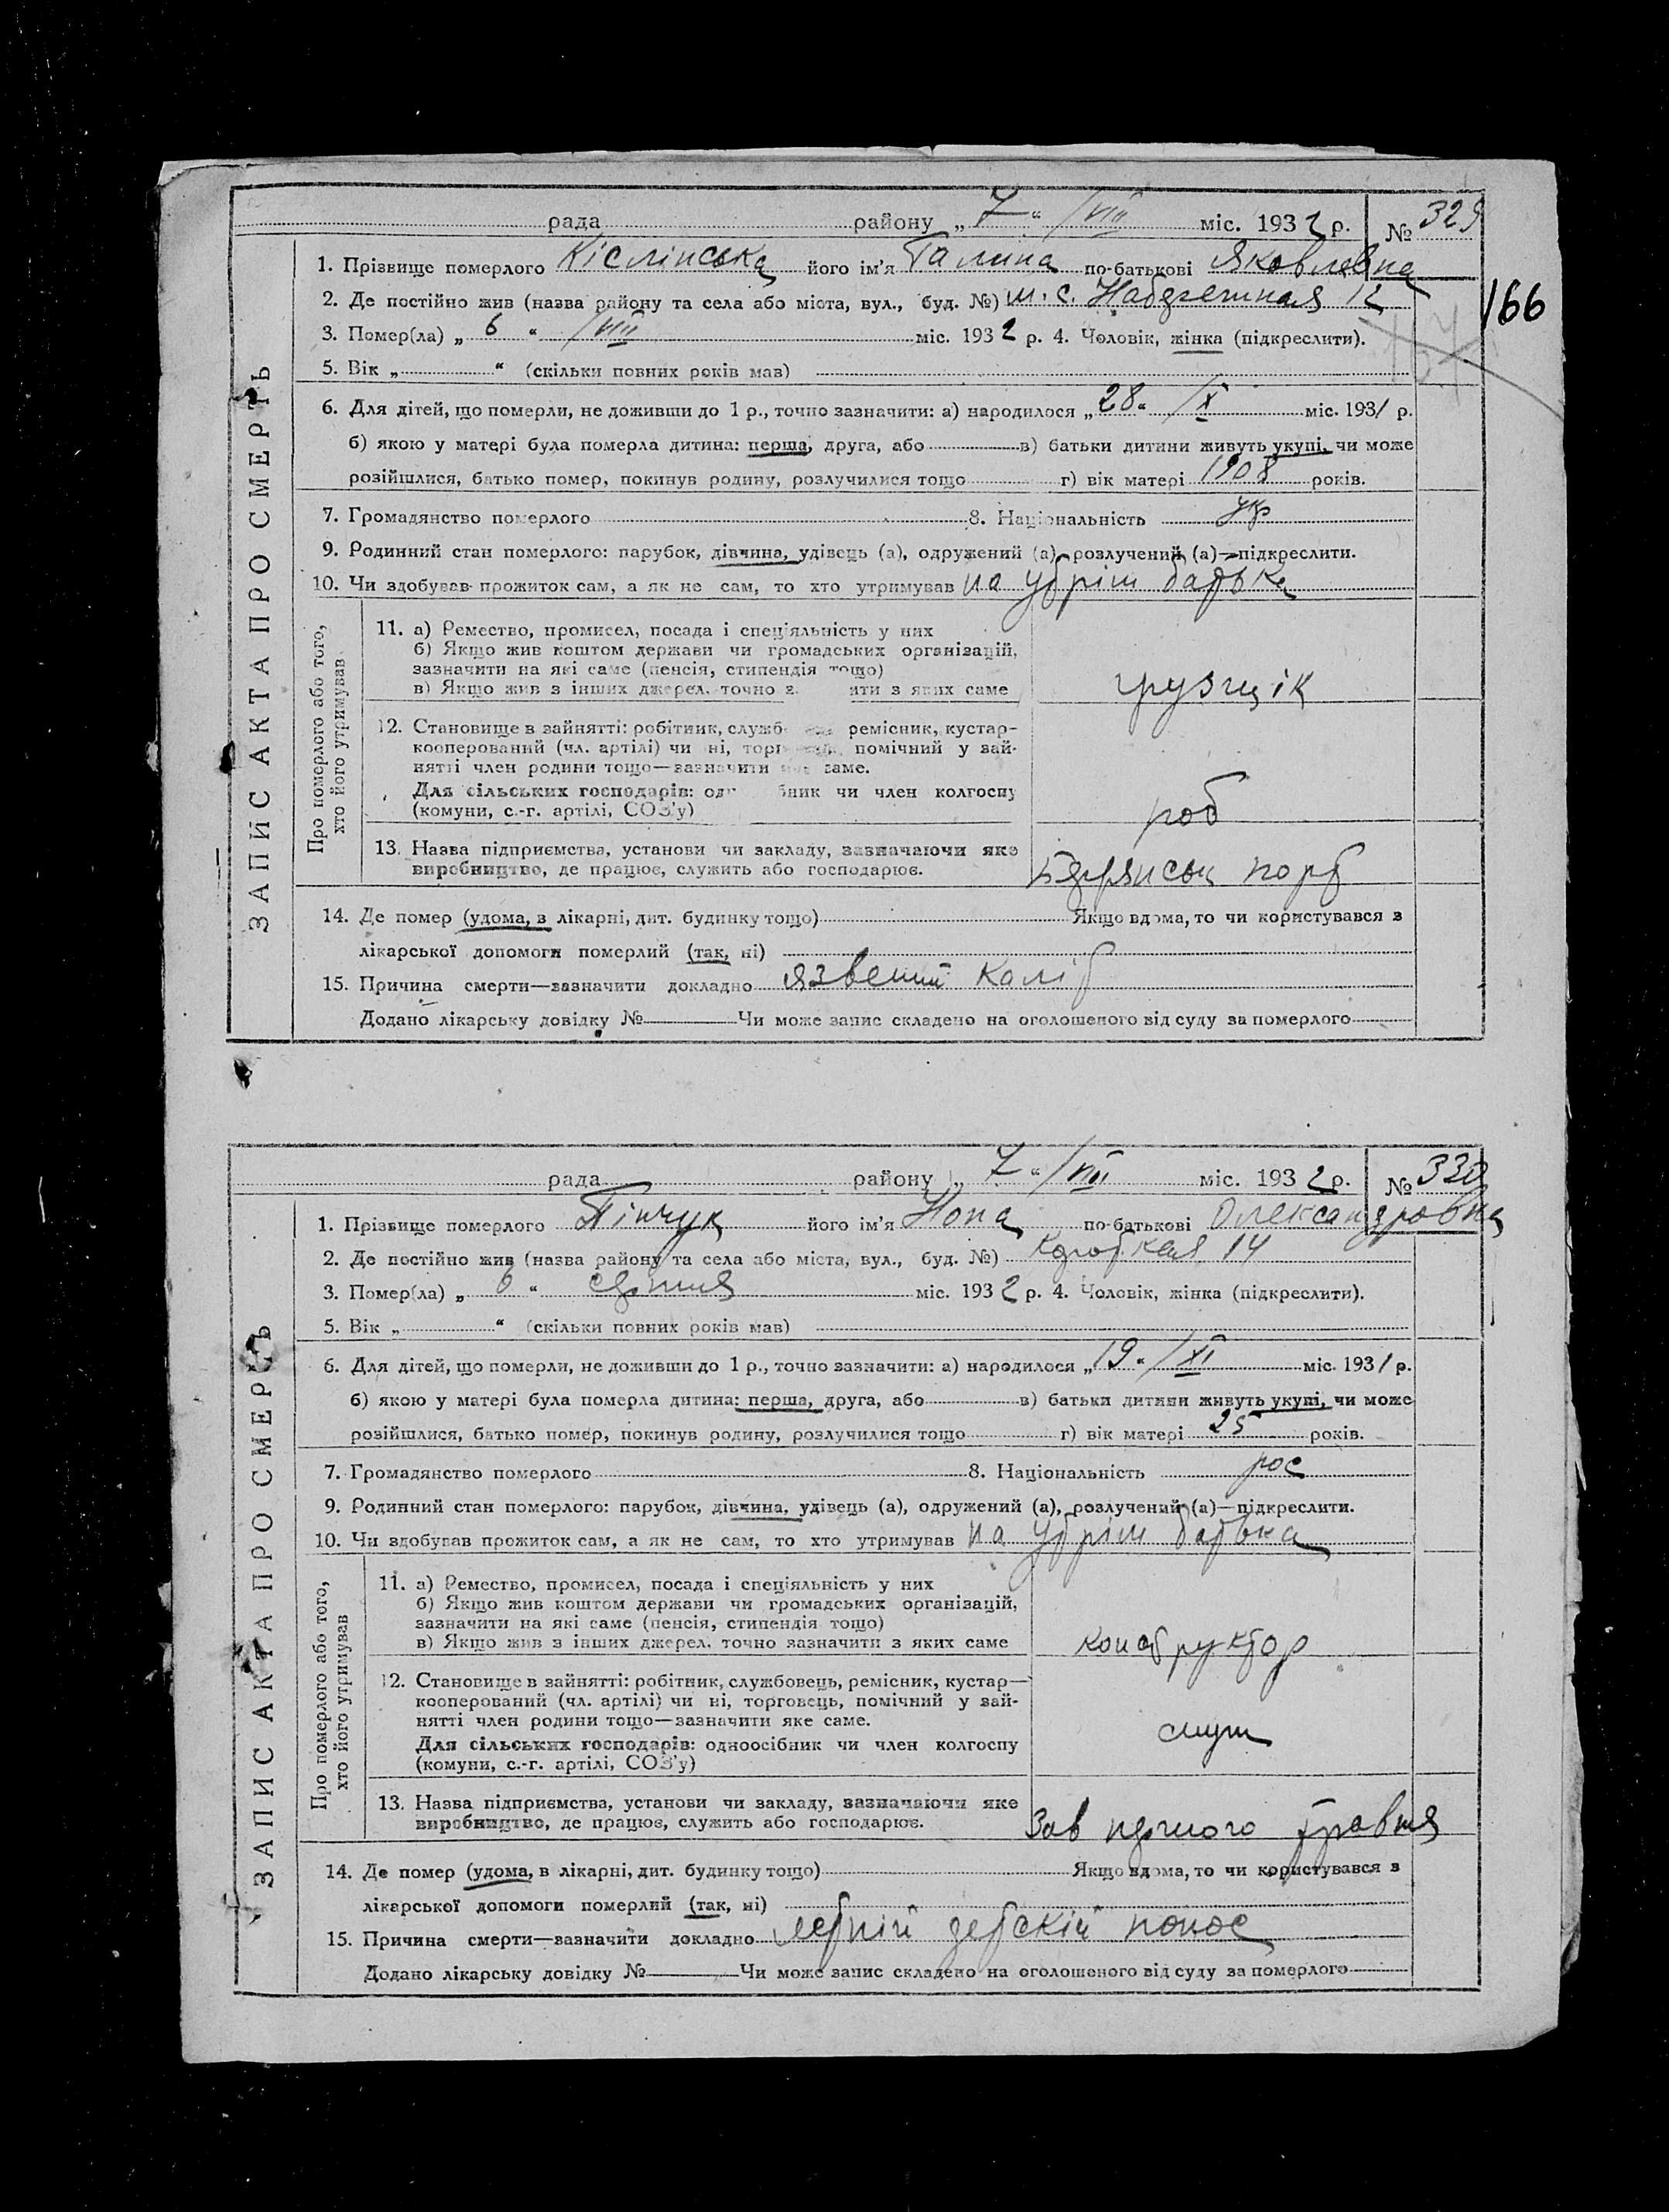 рада району „ 7 “ /VIII міс. 1932 р. № 329
1. Прізвище померлого Кіслінська його ім'я Галина по-батькові Яковлевна
2. Де постійно жив (назва району та села або міста, вул., буд. №) м. с. Набережная 12
166
3. Помер(ла) „ 6 “ /VIII міс. 1932 р. 4. Чоловік, жінка (підкреслити).
5. Вік „ “ (скільки повних років мав)
6. Для дітей, що померли, не доживши до 1 р., точно зазначити: а) народилося „ 28 “ /X міс. 1931 р.
б) якою у матері була померла дитина: перша, друга, або в) батьки дитини живуть укупі, чи може
розійшлися, батько помер, покинув родину, розлучилися тощо г) вік матері 1908 років.
7. Громадянство померлого 8. Національність укр
9. Родинний стан померлого: парубок, дівчина, удівець (а), одружений (а), розлучений (а)—підкреслити.
10. Чи здобував прожиток сам, а як не сам, то хто утримував на утрім батька
ЗАПИС АКТА ПРО СМЕРТЬ
Про померлого або того,
хто його утримував
11. а) Ремество, промисел, посада і спеціяльність у них
б) Якщо жив коштом держави чи громадських організацій,
зазначити на які саме (пенсія, стипендія тощо)
в) Якщо жив з інших джерел, точно з ити з яких саме
грузчік
12. Становище в зайнятті: робітник, служб ремісник, кустар-
кооперований (чл. артілі) чи ні, торг помічний у зай-
нятті член родини тощо—зазначити яке саме.
Для сільських господарів: од бник чи член колгоспу
(комуни, с.-г. артілі, СОЗ'у)
роб
13. Назва підприємства, установи чи закладу, зазначаючи яке
виробництво, де працює, служить або господарює.
Бердянськ порт
14. Де помер (удома, в лікарні, дит. будинку тощо) Якщо вдома, то чи користувався з
лікарської допомоги померлий (так, ні)
15. Причина смерти—зазначити докладно язвений коліт
Додано лікарську довідку № Чи може запис складено на оголошеного від суду за померлого
рада району „ 7 “ /VIII міс. 1932 р. № 330
1. Прізвище померлого Пінчук його ім'я Нона по-батькові Олександровна
2. Де постійно жив (назва району та села або міста, вул., буд. №) 14
3. Помер(ла) „ 6 “ серпня міс. 1932 р. 4. Чоловік, жінка (підкреслити).
5. Вік „ “ (скільки повних років мав)
6. Для дітей, що померли, не доживши до 1 р., точно зазначити: а) народилося „ 19 “ /XI міс. 1931 р.
б) якою у матері була померла дитина: перша, друга, або в) батьки дитини живуть укупі, чи може
розійшлися, батько помер, покинув родину, розлучилися тощо г) вік матері 25 років.
7. Громадянство померлого 8. Національність рос
9. Родинний стан померлого: парубок, дівчина, удівець (а), одружений (а), розлучений (а)—підкреслити.
10. Чи здобував прожиток сам, а як не сам, то хто утримував на утрім батька
ЗАПИС АКТА ПРО СМЕРТЬ
Про померлого або того,
хто його утримував
11. а) Ремество, промисел, посада і спеціяльність у них
б) Якщо жив коштом держави чи громадських організацій,
зазначити на які саме (пенсія, стипендія тощо)
в) Якщо жив з інших джерел, точно зазначити з яких саме
конструктор
12. Становище в зайнятті: робітник, службовець, ремісник, кустар—
кооперований (чл. артілі) чи ні, торговець, помічний у зай-
нятті член родини тощо—зазначити яке саме.
Для сільських господарів: одноосібник чи член колгоспу
(комуни, с.-г. артілі, СОЗ'у)
служ
13. Назва підприємства, установи чи закладу, зазначаючи яке
виробництво, де працює, служить або господарює.
Зав першого травня
14. Де помер (удома, в лікарні, дит. будинку тощо) Якщо вдома, то чи користувався з
лікарської допомоги померлий (так, ні)
15. Причина смерти—зазначити докладно летній детскій понос
Додано лікарську довідку № Чи може запис складено на оголошеного від суду за померлого